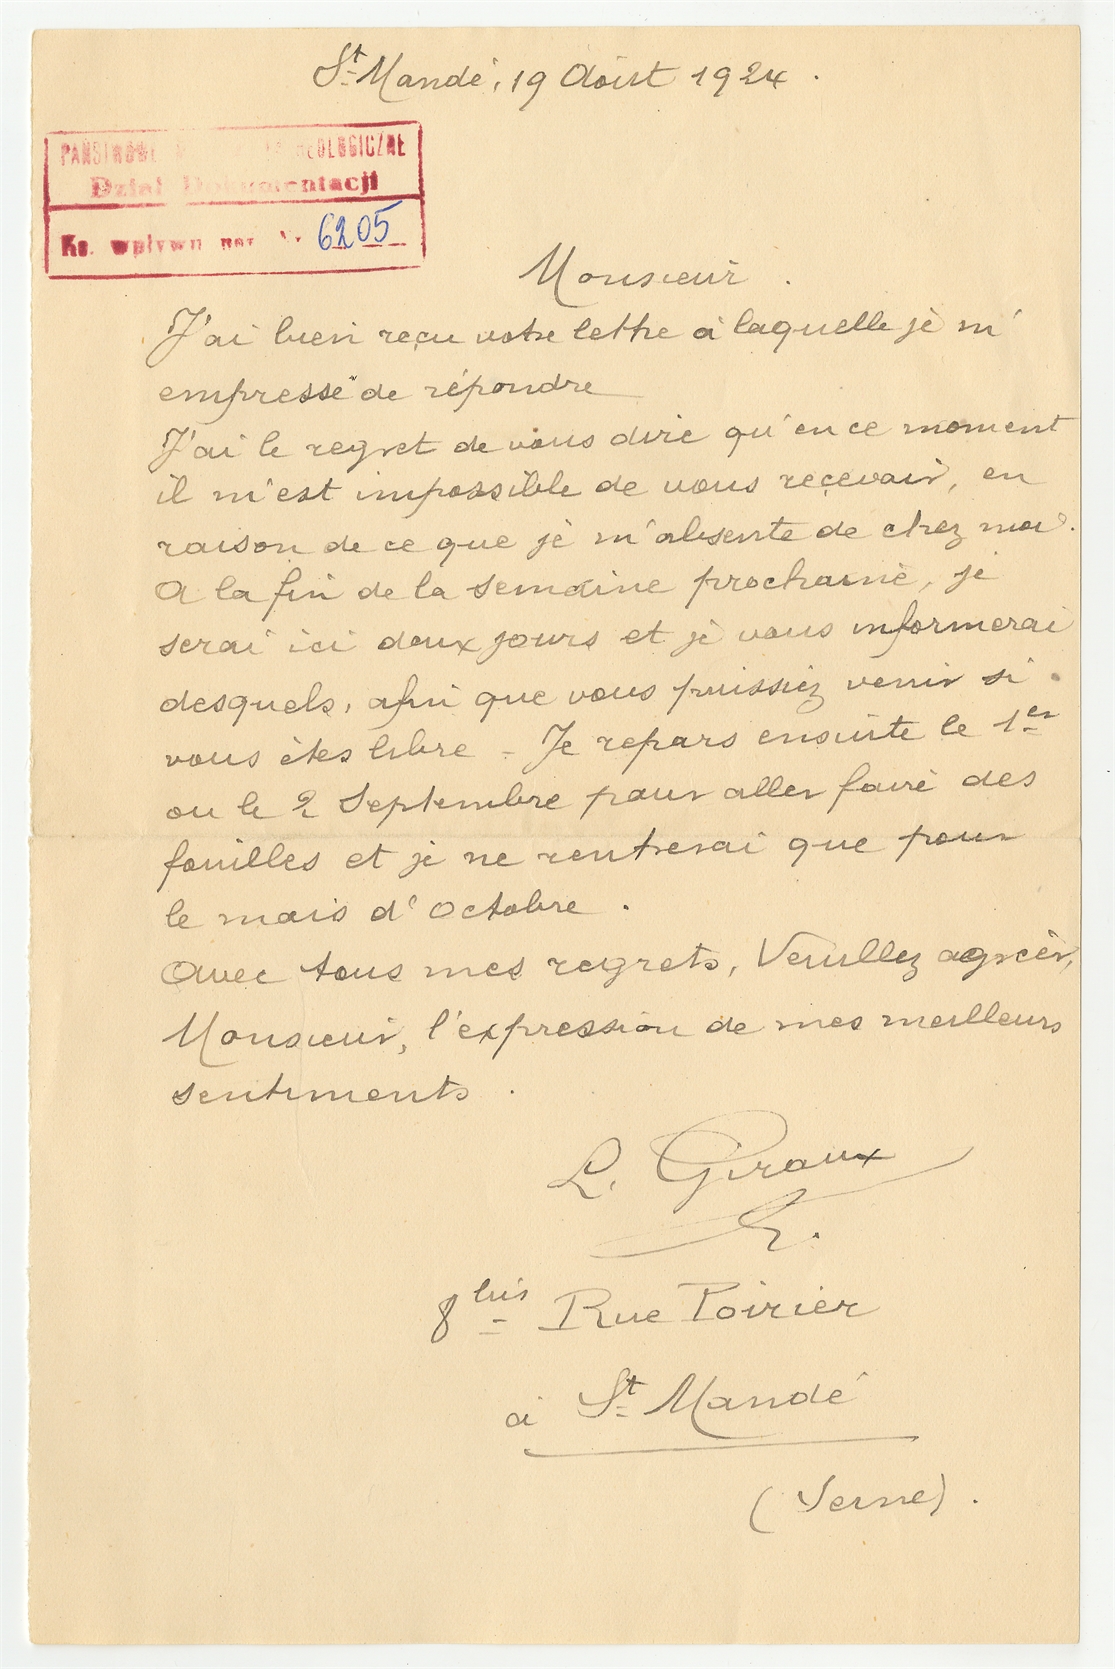 St Mandé, 19 Août 1924.
Dział Dokumentacji
Ks. wpływu 6205
Monsieur.
J'ai bien reçu votre lettre à laquelle je m'
empresse de répondre
J'ai le regret de vous dire qu'en ce moment
il m'est impossible de vous recevoir, en
raison de ce que je m'absente de chez moi.
A la fin de la semaine prochaine, je
serai ici deux jours et je vous informerai
desquels, afin que vous puissiez venir si
vous êtes libre - Je repars ensuite le 1er
ou le 2 Septembre pour aller faire des
fouilles et je ne rentrerai que pour
le mois d'Octobre.
Avec tous mes regrets, Veuillez agréer,
Monsieur, l'expression de mes meilleurs
sentiments.
L. Giraux
8 bis Rue Poirier
à St Mandé
(Seine).